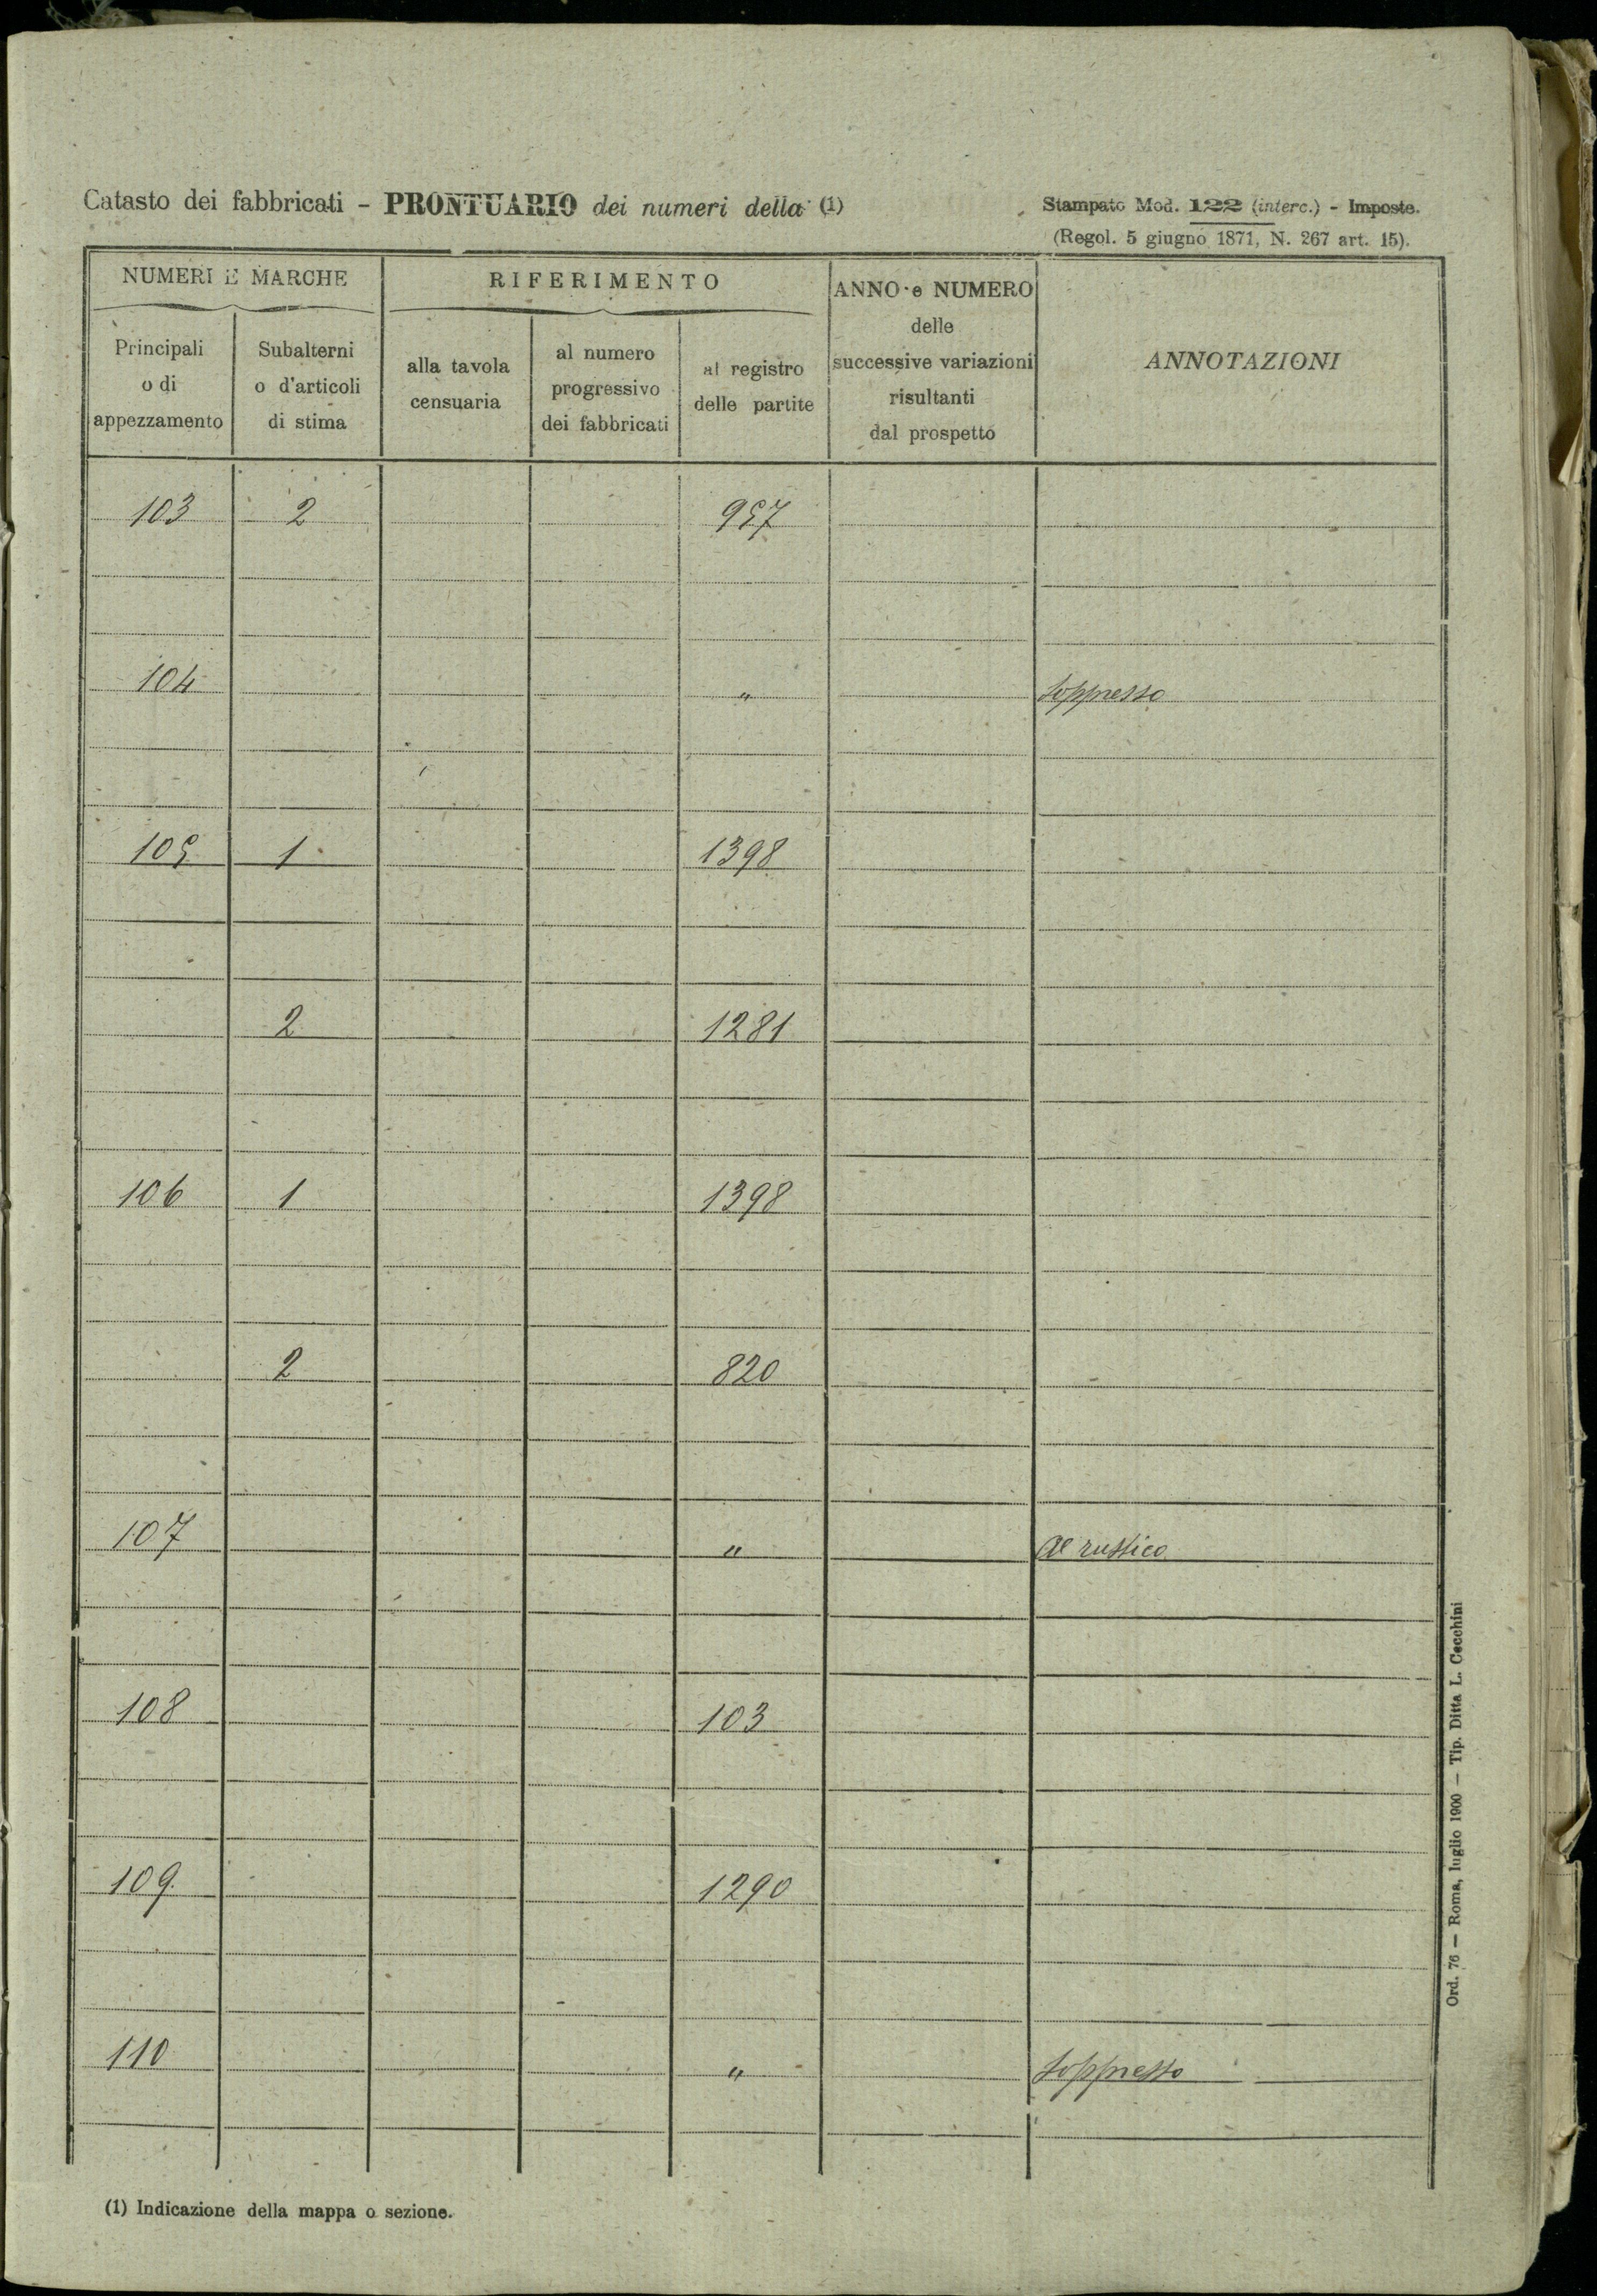 Catasto dei fabbricati - PRONTUARIO dei numeri della (1)
Stampato Mod. 122 (interc.) - Imposte.
(Regol. 5 giugno 1871, N. 267 art. 15).
NUMERI E MARCHE
RIFERIMENTO
ANNO e NUMERO
delle
successive variazioni
risultanti
dal prospetto
ANNOTAZIONI
Principali
o di
appezzamento
Subalterni
o d'articoli
di stima
alla tavola
censuaria
al numero
progressivo
dei fabbricati
al registro
delle partite
103 2 957
104 " Soppresso
105 1 1398
2 1281
106 1 1398
2 820
107 " Al rustico
108 103
109 1290
110 " Soppresso
(1) Indicazione della mappa o sezione.
Ord. 76 — Roma, luglio 1900 — Tip. Ditta L. Cecchini